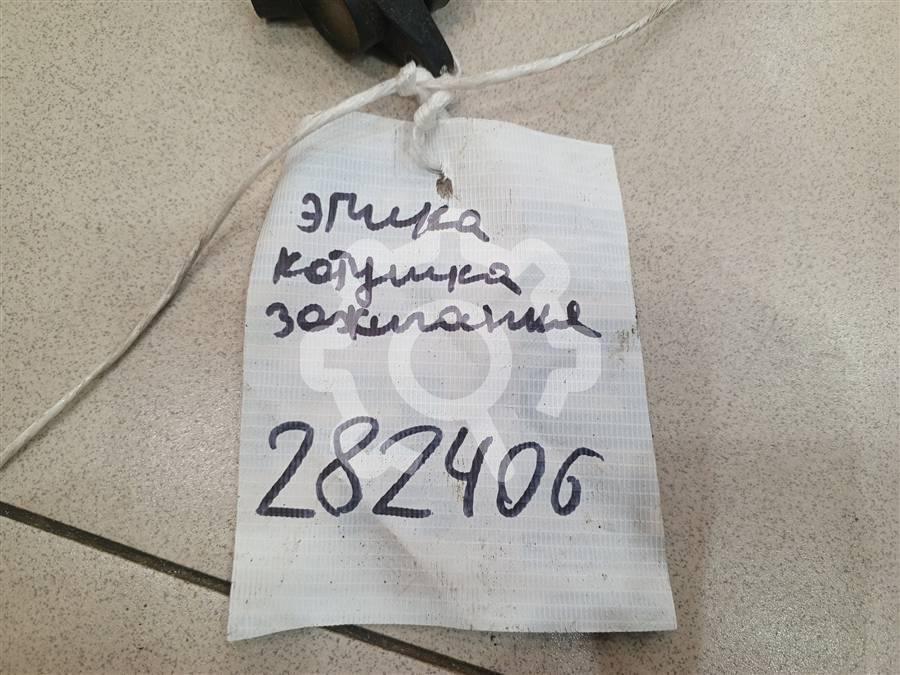 эпика
катушка
зажигания
282406